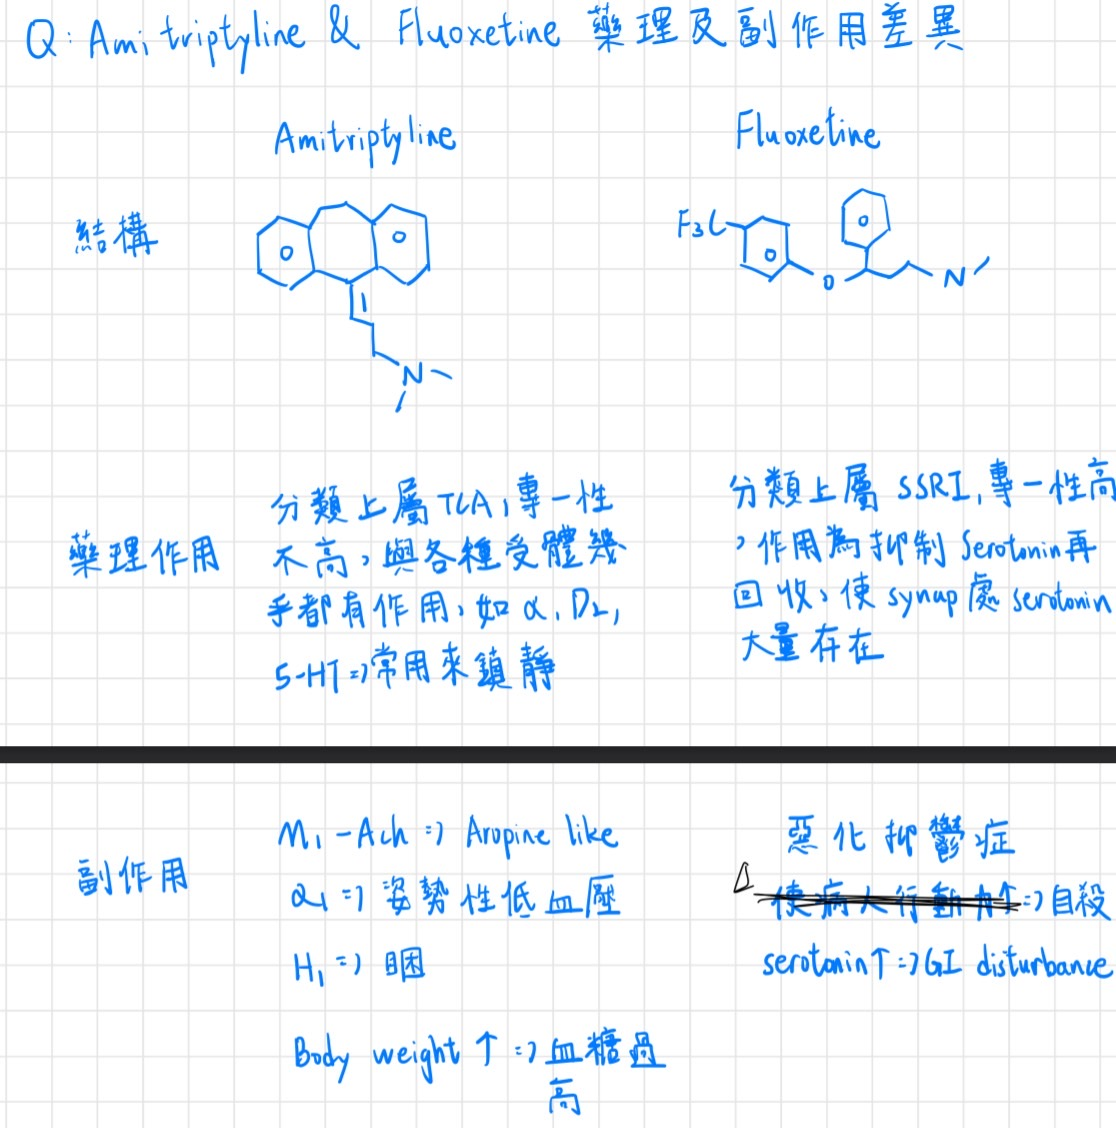 Q: Amitriptyline & Fluoxetine 藥理及副作用差異
Amitriptyline
Fluoxetine
結構
N
F3C
O
N
藥理作用
分類上屬TCA,專一性
不高,與各種受體幾
乎都有作用,如α1, D2,
5-HT=>常用來鎮靜
分類上屬 SSRI,專一性高
,作用為抑制 Serotonin再
回收,使 synap處 serotonin
大量存在
副作用
M1-Ach => Aropine like
α1 => 姿勢性低血壓
H1 => 睏
Body weight ↑ => 血糖過
高
惡化抑鬱症
使病人行動力↑=>自殺
serotonin↑=>GI disturbance